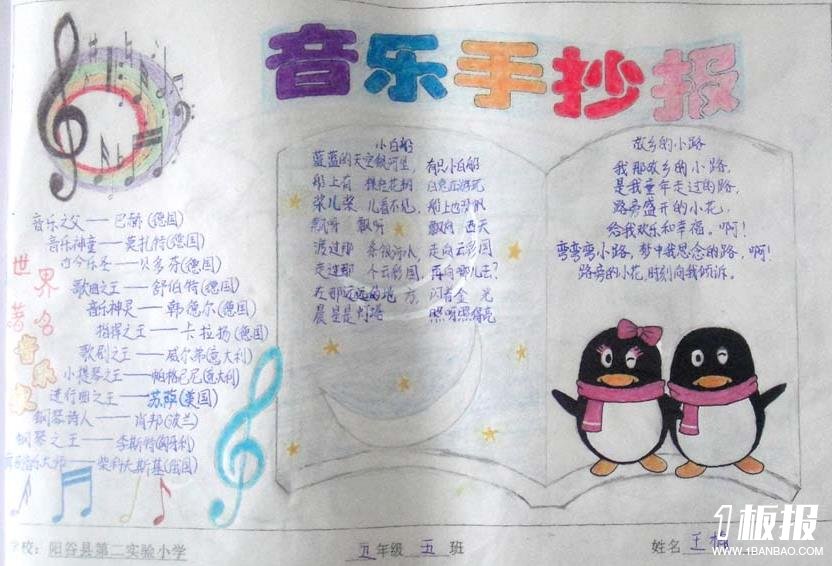 音乐手抄报
音乐之父——巴赫(德国)
音乐神童——莫扎特(德国)
古今乐圣——贝多芬(德国)
歌曲之王——舒伯特(德国)
音乐神灵——韩德尔(德国)
指挥之王——卡拉扬(德国)
歌剧之王——威尔第(意大利)
小提琴之王——帕格尼尼(意大利)
进行曲之王——苏萨(美国)
钢琴诗人——肖邦(波兰)
钢琴之王——李斯特(匈牙利)
音乐大师——柴科夫斯基(俄国)
世界著名音乐家
小白船
蓝蓝的天空银河里, 有只小白船
船上有 棵桂花树 白兔在游玩
桨儿桨 儿看不见, 船上也没帆
飘呀 飘呀 飘向 西天
渡过那 条银河水, 走向云彩国
走过那 个云彩国, 再向哪儿去?
在那遥远的地 方, 闪着金 光
晨星是灯塔 照呀照得亮
故乡的小路
我那故乡的小路,
是我童年走过的路,
路旁盛开的小花,
给我欢乐和幸福。啊!
弯弯弯小路,梦中我思念的路。啊!
路旁的小花,时刻向我倾诉。
学校: 阳谷县第二实验小学 五 年级 五 班 姓名 王
1板报
WWW.1BANBAO.COM